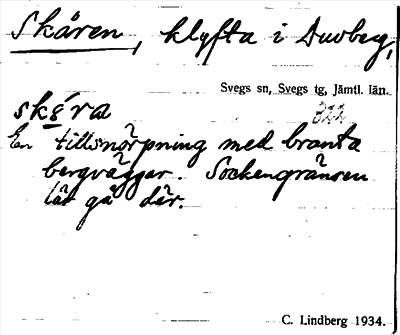 Skåren, klyfta i Duvberg,
Svegs sn, Svegs tg, Jämtl. län.
322
skǵra
En tillsnörpning med branta
bergväggar. Sockengränsen
lär gå där.
C. Lindberg 1934.